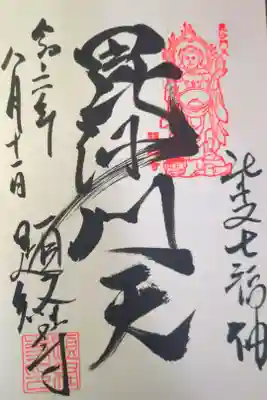 柴又七福神
毘沙門天
令和二年
八月十一日
題経寺